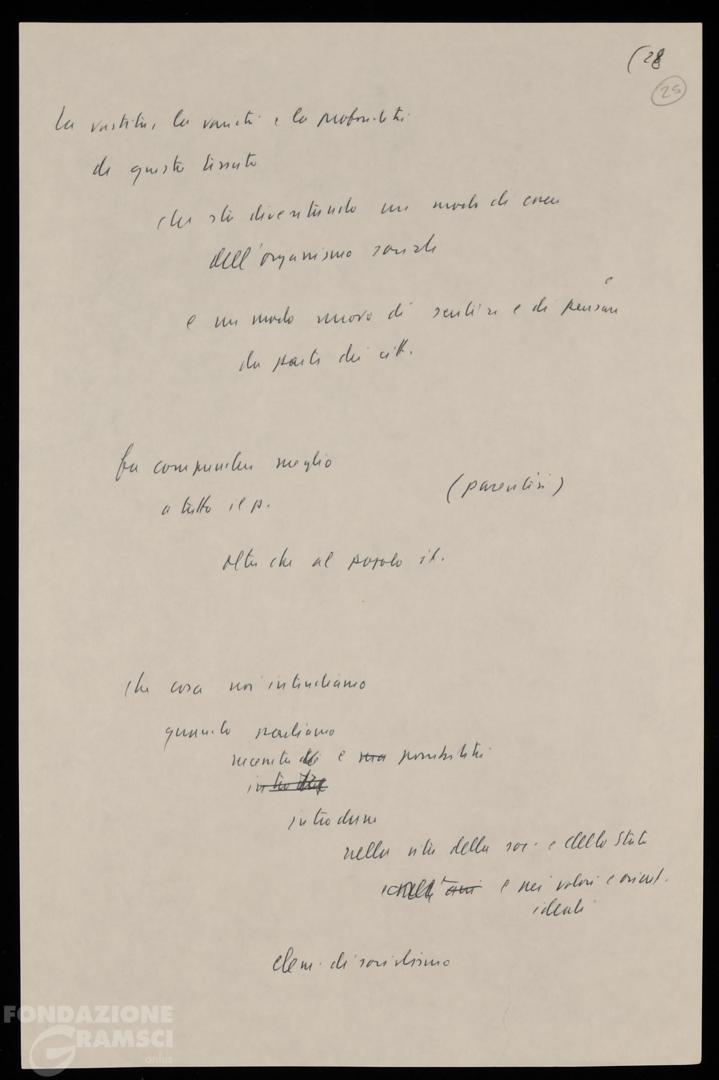 (28
25
La vastità, la varietà e la profondità
di questo tessuto
che sta diventando un modo di essere
dell'organismo sociale
e un modo nuovo di sentire e di pensare
da parte dei citt.
fa comprendere meglio
a tutto il p. (parentesi)
oltre che al popolo it.
che cosa noi intendiamo
quando parliamo
necessità e possibilità
introdurre
nella vita della soc. e dello Stato
e nei valori e orient.
ideali
elem. di socialismo
FONDAZIONE
GRAMSCI
onlus